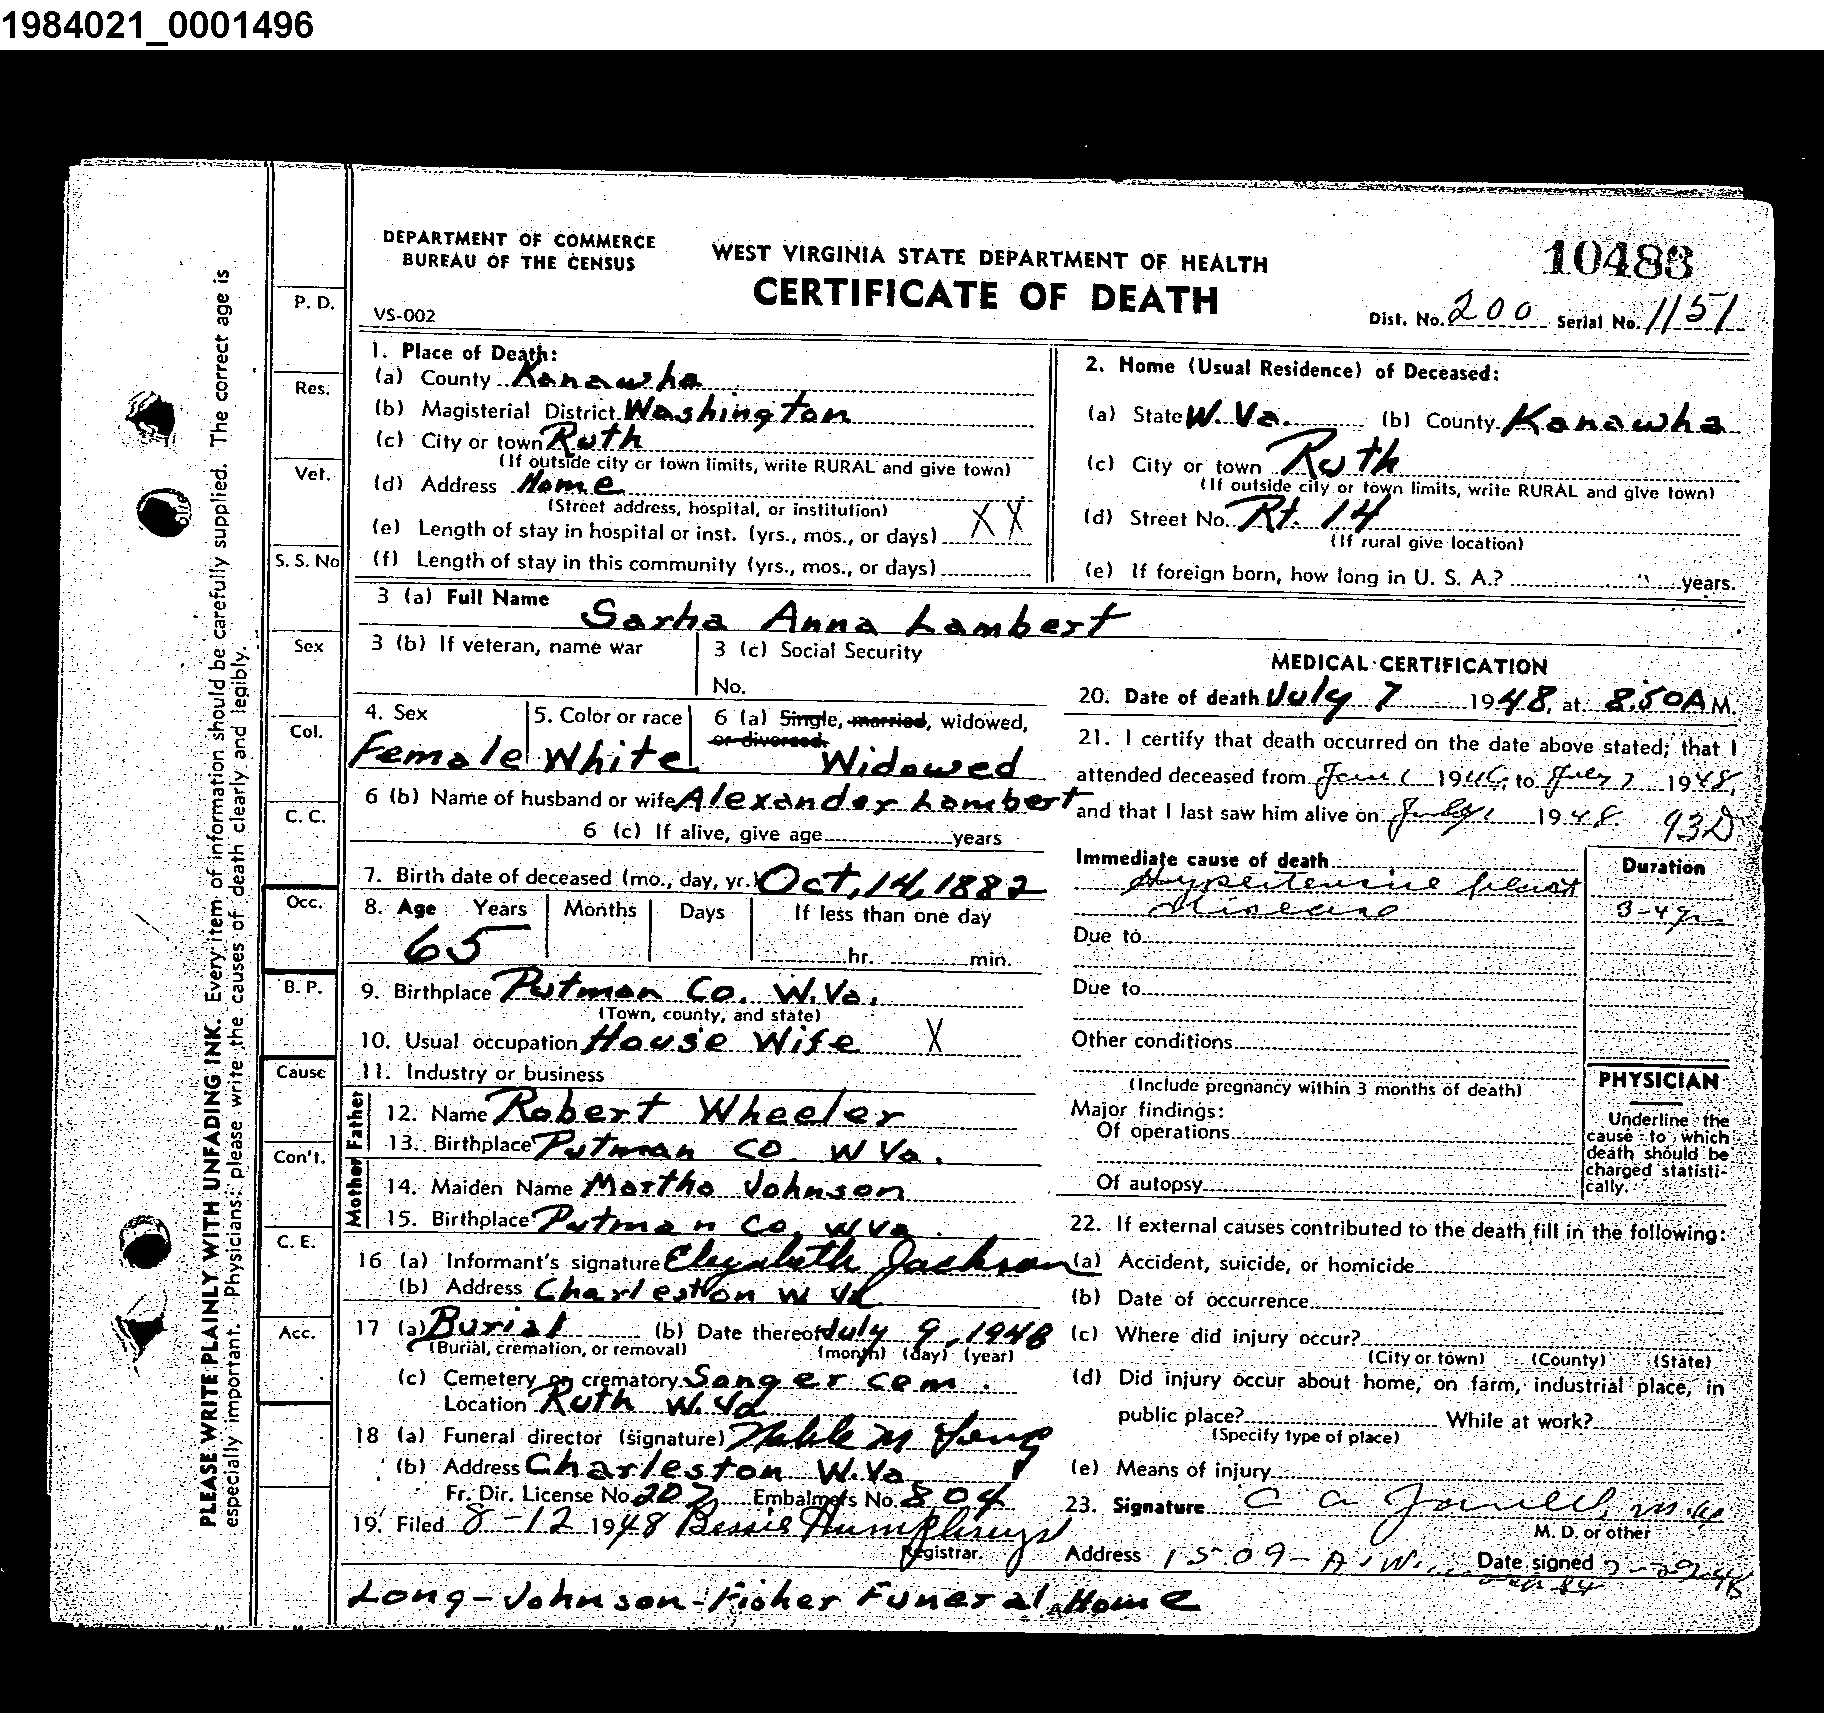 1984021_0001496
DEPARTMENT OF COMMERCE
BUREAU OF THE CENSUS
VS-002
WEST VIRGINIA STATE DEPARTMENT OF HEALTH
CERTIFICATE OF DEATH
10483
Dist. No. 200 Serial No. 1151
PLEASE WRITE PLAINLY WITH UNFADING INK. Every item of information should be carefully supplied. The correct age is
especially important. Physicians: please write the causes of death clearly and legibly.
P. D.
Res.
Vet.
S. S. No
Sex
Col.
C. C.
Occ.
B. P.
Cause
Con't.
C. E.
Acc.
1. Place of Death:
(a) County Kanawha
(b) Magisterial District Washington
(c) City or town Ruth
(If outside city or town limits, write RURAL and give town)
(d) Address Home
(Street address, hospital, or institution)
(e) Length of stay in hospital or inst. (yrs., mos., or days) XX
(f) Length of stay in this community (yrs., mos., or days)
2. Home (Usual Residence) of Deceased:
(a) State W. Va. (b) County Kanawha
(c) City or town Ruth
(If outside city or town limits, write RURAL and give town)
(d) Street No. Rt. 14
(If rural give location)
(e) If foreign born, how long in U. S. A.? years.
3 (a) Full Name Sarha Anna Lambert
3 (b) If veteran, name war
3 (c) Social Security
No.
4. Sex
Female
5. Color or race
White
6 (a) Single, married, widowed,
or divorced.
Widowed
6 (b) Name of husband or wife Alexander Lambert
6 (c) If alive, give age years
7. Birth date of deceased (mo., day, yr.) Oct, 14, 1882
8. Age Years Months Days If less than one day
65
hr. min.
9. Birthplace Putman Co. W.Va.
(Town, county, and state)
10. Usual occupation House Wife X
11. Industry or business
Father
12. Name Robert Wheeler
13. Birthplace Putman Co. W Va.
Mother
14. Maiden Name Martha Johnson
15. Birthplace Putman Co. W Va.
16 (a) Informant's signature Elizabeth Jackson
(b) Address Charleston W Va
17 (a) Burial (b) Date thereof July 9, 1948
(Burial, cremation, or removal) (month) (day) (year)
(c) Cemetery or crematory Sanger cem.
Location Ruth W. Va
18 (a) Funeral director (signature)
(b) Address Charleston W.Va
Fr. Dir. License No. 207 Embalmer's No. 804
19. Filed 8-12 1948 Bessie Humphreys
Registrar.
Long-Johnson-Fisher Funeral Home
MEDICAL CERTIFICATION
20. Date of death July 7 1948, at 8:50 A M.
21. I certify that death occurred on the date above stated; that I
attended deceased from 1946, to July 7 1948,
and that I last saw him alive on July 1 1948. 93D
Immediate cause of death
Duration
Hypertensive heart
disease
3-4 yr
Due to
Due to
Other conditions
(Include pregnancy within 3 months of death)
Major findings:
Of operations
Of autopsy
PHYSICIAN
Underline the
cause to which
death should be
charged statisti-
cally.
22. If external causes contributed to the death fill in the following:
(a) Accident, suicide, or homicide
(b) Date of occurrence
(c) Where did injury occur?
(City or town) (County) (State)
(d) Did injury occur about home, on farm, industrial place, in
public place? While at work?
(Specify type of place)
(e) Means of injury
23. Signature C A
M. D. or other
Address 1509-A. W. Date signed